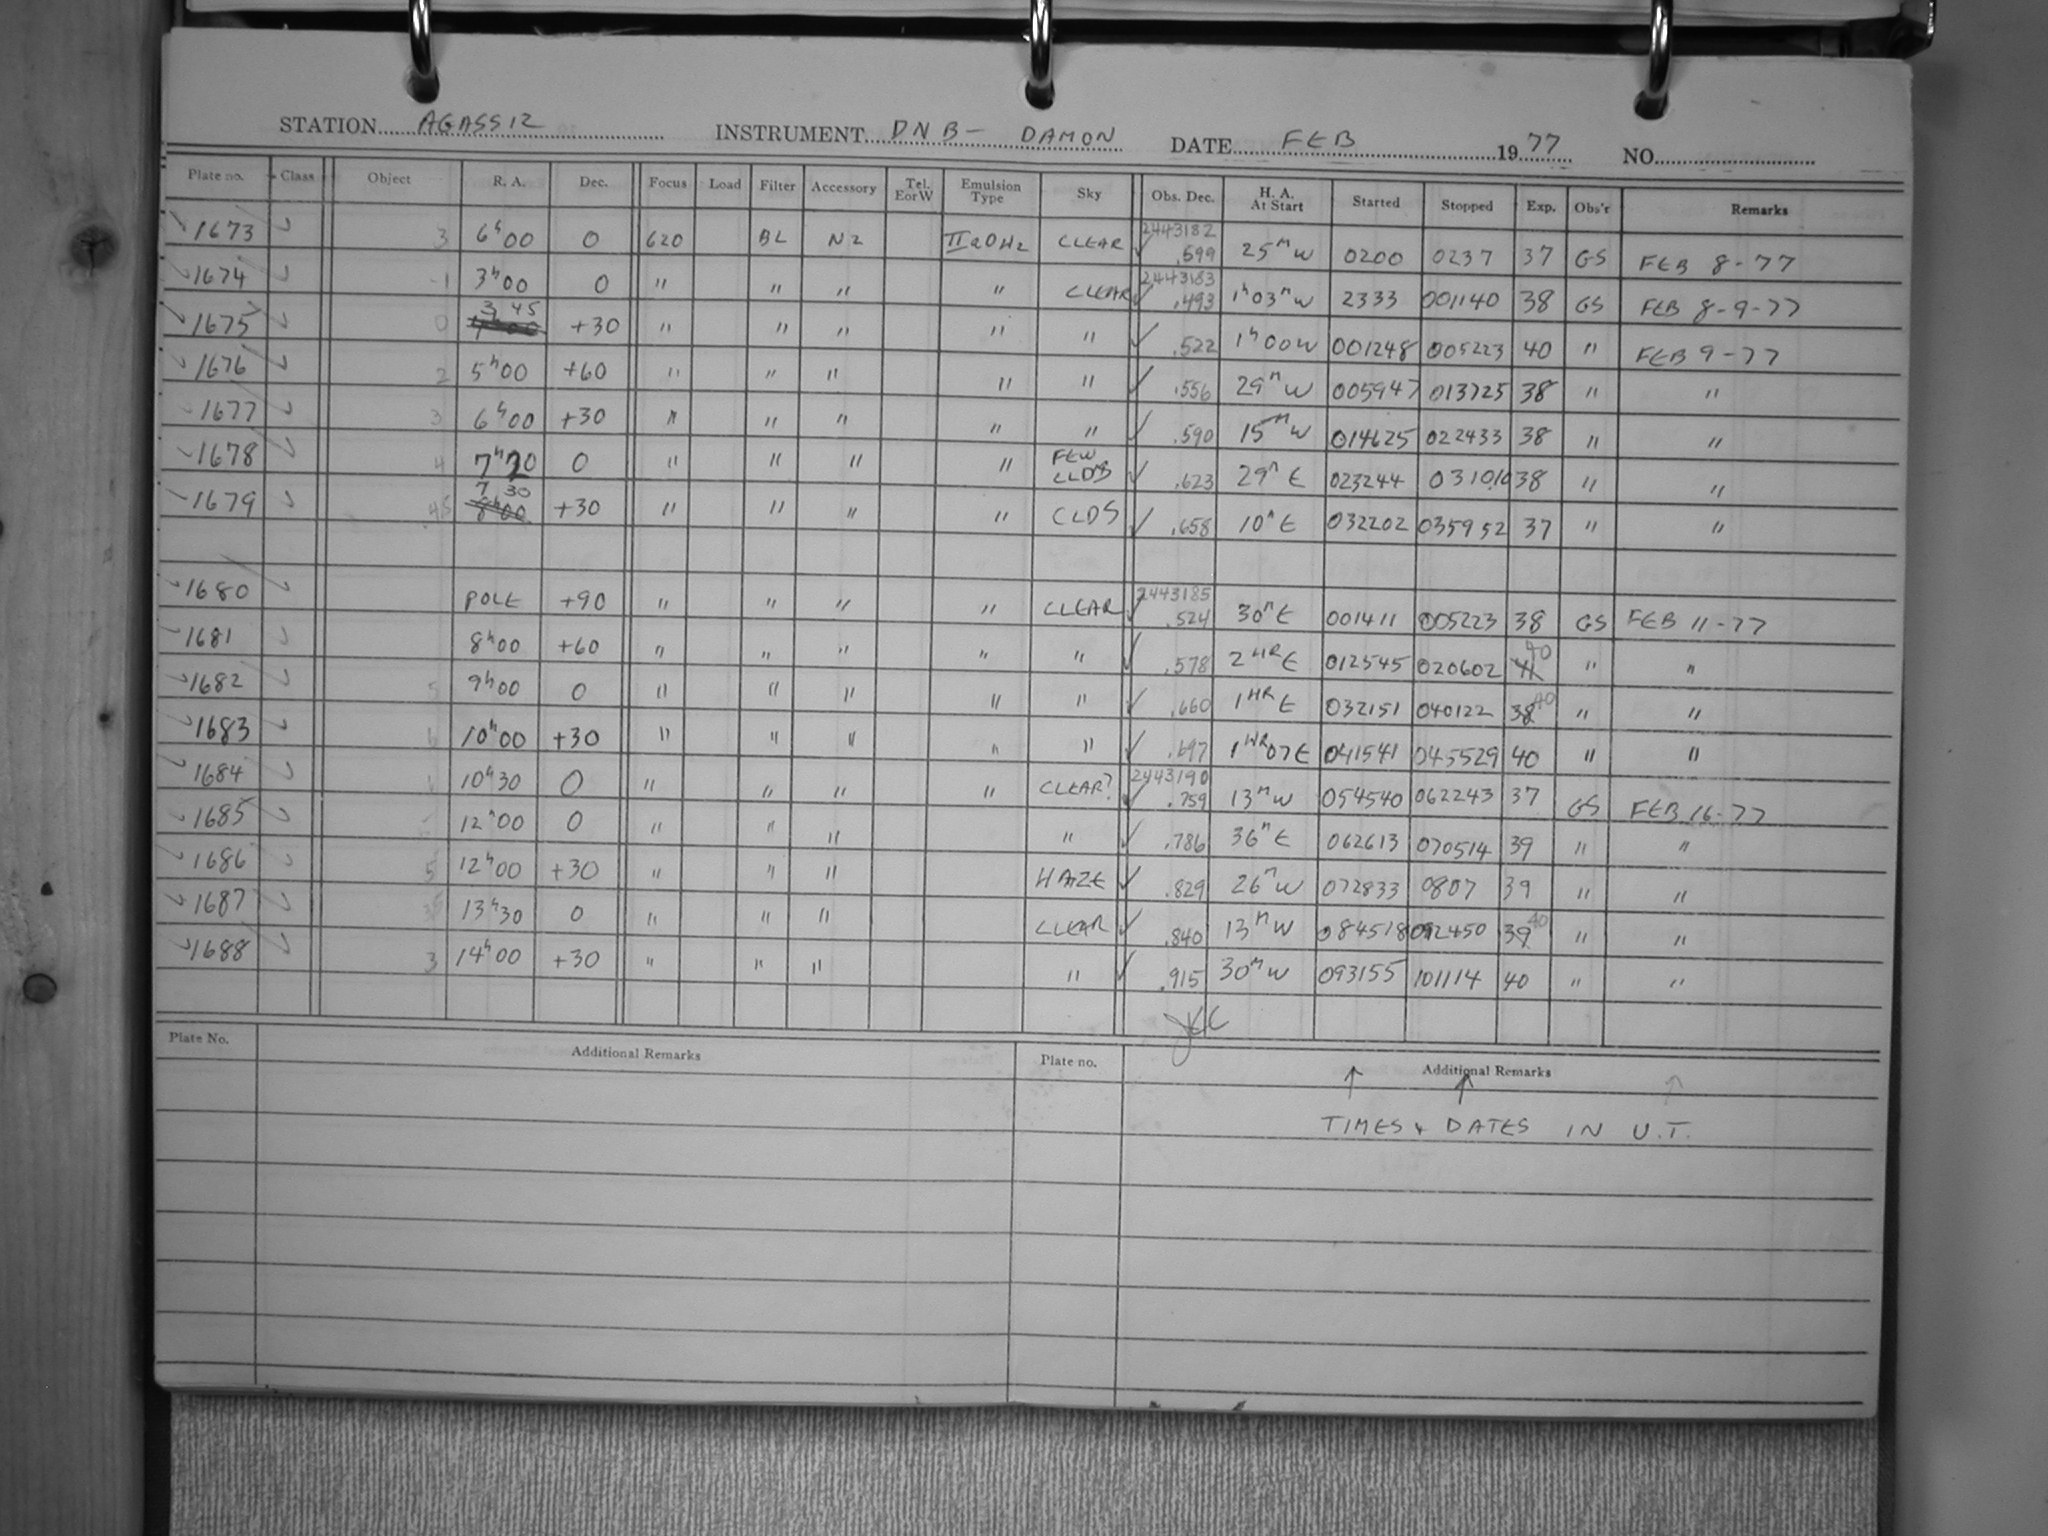 STATION AGASSIZ INSTRUMENT DNB- DAMON DATE FEB 1977 NO.
Plate no. Class Object R. A. Dec. Focus Load Filter Accessory Tel. E or W Emulsion Type Sky Obs. Dec. H. A. At Start Started Stopped Exp. Obs'r Remarks
1673 3 6h00 0 620 BL N2 IIaOH2 CLEAR 2443182 .599 25m W 0200 0237 37 GS FEB 8-77
1674 -1 3h00 0 " " " " CLEAR 2443183 .493 1h03m W 2333 001140 38 GS FEB 8-9-77
1675 0 3 45 +30 " " " " " .522 1h00W 001248 005223 40 " FEB 9-77
1676 2 5h00 +60 " " " " " .556 29m W 005947 013725 38 " "
1677 3 6h00 +30 " " " " " .590 15m W 014625 022433 38 " "
1678 4 7h20 0 " " " " FEW CLDS .623 29m E 023244 031010 38 " "
1679 7 30 +30 " " " " CLDS .658 10m E 032202 035952 37 " "
1680 POLE +90 " " " " CLEAR 2443185 .524 30m E 001411 005223 38 GS FEB 11-77
1681 8h00 +60 " " " " " .578 2HR E 012545 020602 40 " "
1682 5 9h00 0 " " " " " .660 1HR E 032151 040122 38 40 " "
1683 10h00 +30 " " " " " .697 1HR07E 041541 045529 40 " "
1684 10h30 0 " " " " CLEAR? 2443190 .759 13m W 054540 062243 37 GS FEB 16-77
1685 12h00 0 " " " " .786 36m E 062613 070514 39 " "
1686 5 12h00 +30 " " " HAZE .829 26m W 072833 0807 39 " "
1687 13h30 0 " " " CLEAR .840 13m W 084518 092450 39 40 " "
1688 3 14h00 +30 " " " " .915 30m W 093155 101114 40 " "
Plate No. Additional Remarks Plate no. Additional Remarks
TIMES + DATES IN U.T.